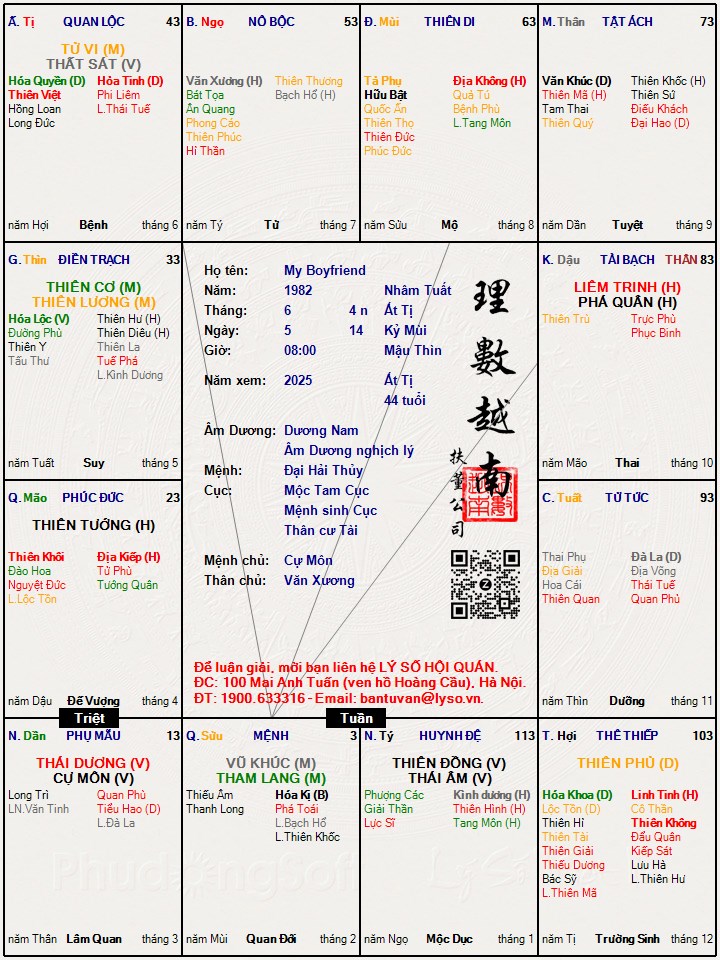 Ấ. Tị QUAN LỘC 43
TỬ VI (M)
THẤT SÁT (V)
Hóa Quyền (D) Hỏa Tinh (D)
Thiên Việt Phi Liêm
Hồng Loan L.Thái Tuế
Long Đức
năm Hợi Bệnh tháng 6
B. Ngọ NÔ BỘC 53
Văn Xương (H) Thiên Thương
Bát Tọa Bạch Hổ (H)
Ân Quang
Phong Cáo
Thiên Phúc
Hỉ Thần
năm Tý Tử tháng 7
Đ. Mùi THIÊN DI 63
Tả Phụ Địa Không (H)
Hữu Bật Quả Tú
Quốc Ấn Bệnh Phù
Thiên Thọ L.Tang Môn
Thiên Đức
Phúc Đức
năm Sửu Mộ tháng 8
M. Thân TẬT ÁCH 73
Văn Khúc (D) Thiên Khốc (H)
Thiên Mã (H) Thiên Sứ
Tam Thai Điếu Khách
Thiên Quý Đại Hao (D)
năm Dần Tuyệt tháng 9
G. Thìn ĐIỀN TRẠCH 33
THIÊN CƠ (M)
THIÊN LƯƠNG (M)
Hóa Lộc (V) Thiên Hư (H)
Đường Phù Thiên Diêu (H)
Thiên Y Thiên La
Tấu Thư Tuế Phá
L.Kình Dương
năm Tuất Suy tháng 5
Họ tên: My Boyfriend
Năm: 1982 Nhâm Tuất
Tháng: 6 4 n Ất Tị
Ngày: 5 14 Kỷ Mùi
Giờ: 08:00 Mậu Thìn
Năm xem: 2025 Ất Tị
44 tuổi
Âm Dương: Dương Nam
Âm Dương nghịch lý
Mệnh: Đại Hải Thủy
Cục: Mộc Tam Cục
Mệnh sinh Cục
Thân cư Tài
Mệnh chủ: Cự Môn
Thân chủ: Văn Xương
理數越南
扶董公司
Để luận giải, mời bạn liên hệ LÝ SỐ HỘI QUÁN.
ĐC: 100 Mai Anh Tuấn (ven hồ Hoàng Cầu), Hà Nội.
ĐT: 1900.633316 - Email: bantuvan@lyso.vn.
K. Dậu TÀI BẠCH THÂN 83
LIÊM TRINH (H)
PHÁ QUÂN (H)
Thiên Trù Trực Phù
Phục Binh
năm Mão Thai tháng 10
Q. Mão PHÚC ĐỨC 23
THIÊN TƯỚNG (H)
Thiên Khôi Địa Kiếp (H)
Đào Hoa Tử Phù
Nguyệt Đức Tướng Quân
L.Lộc Tồn
năm Dậu Đế Vượng tháng 4
C. Tuất TỬ TỨC 93
Thai Phụ Đà La (D)
Địa Giải Địa Võng
Hoa Cái Thái Tuế
Thiên Quan Quan Phủ
năm Thìn Dưỡng tháng 11
Triệt
Tuần
N. Dần PHỤ MẪU 13
THÁI DƯƠNG (V)
CỰ MÔN (V)
Long Trì Quan Phù
LN.Văn Tinh Tiểu Hao (D)
L.Đà La
năm Thân Lâm Quan tháng 3
Q. Sửu MỆNH 3
VŨ KHÚC (M)
THAM LANG (M)
Thiếu Âm Hóa Kị (B)
Thanh Long Phá Toái
L.Bạch Hổ
L.Thiên Khốc
năm Mùi Quan Đới tháng 2
N. Tý HUYNH ĐỆ 113
THIÊN ĐỒNG (V)
THÁI ÂM (V)
Phượng Các Kình dương (H)
Giải Thần Thiên Hình (H)
Lực Sĩ Tang Môn (H)
năm Ngọ Mộc Dục tháng 1
T. Hợi THÊ THIẾP 103
THIÊN PHỦ (D)
Hóa Khoa (D) Linh Tinh (H)
Lộc Tồn (D) Cô Thần
Thiên Hỉ Thiên Không
Thiên Tài Đẩu Quân
Thiên Giải Kiếp Sát
Thiếu Dương Lưu Hà
Bác Sỹ L.Thiên Hư
L.Thiên Mã
năm Tị Trường Sinh tháng 12